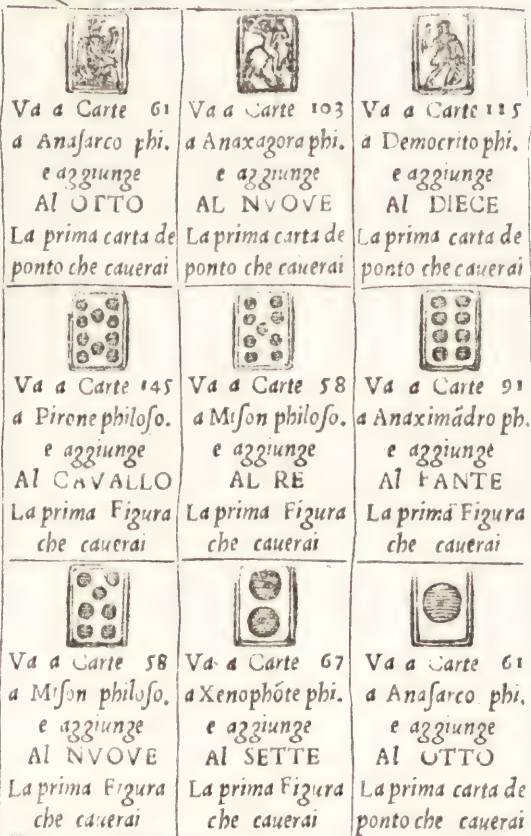 Va a Carte 61
a Anaſarco phi.
e aggiunge
Al OTTO
La prima carta de
ponto che cauerai
Va a Carte 103
a Anaxagora phi.
e aggiunge
AL NVOVE
La prima carta de
ponto che cauerai
Va a Carte 115
a Democrito phi.
e aggiunge
Al DIECE
La prima carta de
ponto che cauerai
Va a Carte 145
a Pirone philoſo.
e aggiunge
Al CAVALLO
La prima Figura
che cauerai
Va a Carte 58
a Miſon philoſo.
e aggiunge
AL RE
La prima Figura
che cauerai
Va a Carte 91
a Anaximādro ph.
e aggiunge
Al FANTE
La prima Figura
che cauerai
Va a Carte 58
a Miſon philoſo.
e aggiunge
Al NVOVE
La prima Figura
che cauerai
Va a Carte 67
a Xenophōte phi.
e aggiunge
Al SETTE
La prima Figura
che cauerai
Va a Carte 61
a Anaſarco phi.
e aggiunge
Al OTTO
La prima carta de
ponto che cauerai